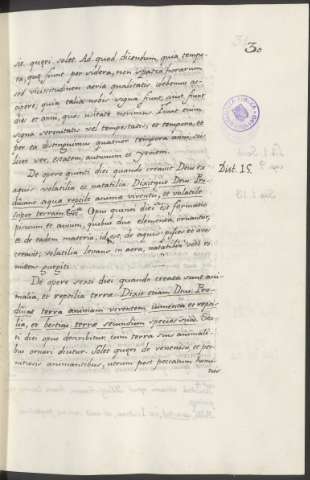 30
re. quęri solet. Ad quod dicendum, quia tempo-
ra, quę fiunt per sidera, non spatia horarum
sed vicissitudinem aeria qualitatis debemus ac-
cipere, quia talia nobis signa sunt, sicut sunt
dies et anni, quos usitate novimus. Sunt enim
signa serenitatis vel tempestatis, et tempora, et
per ea distinguimus quatuor tempora anni, sci-
licet ver, estatem, autumnum et hyemem.
De opere quinti diei quando creavit Deus ex
aquis volatilia et natatilia. Dixit quoque Deus Pro-
ducant aquę reptile animę viventis, et volatile
super terram, &c. Opus quinti diei est formatio
piscium et avium, quibus duo elementa ornantur,
et de eadem materia, id est, de aquis pisces et aves
creavit, volatilia levans in aera, natatilia vero re-
mittens gurgiti.
Dist. 15.
De opere sexti diei quando creata sunt ani-
malia, et reptilia terrę. Dixit etiam Deus Pro-
ducat terra animam viventem iumenta et repti-
lia, et bestias terrę secundum species suas. Sex-
ti diei opus describitur, cum terra suis animali-
bus ornari dicitur. Solet quęri de venenosis et per-
nitiosis animantibus, utrum post peccatum homi-
nis